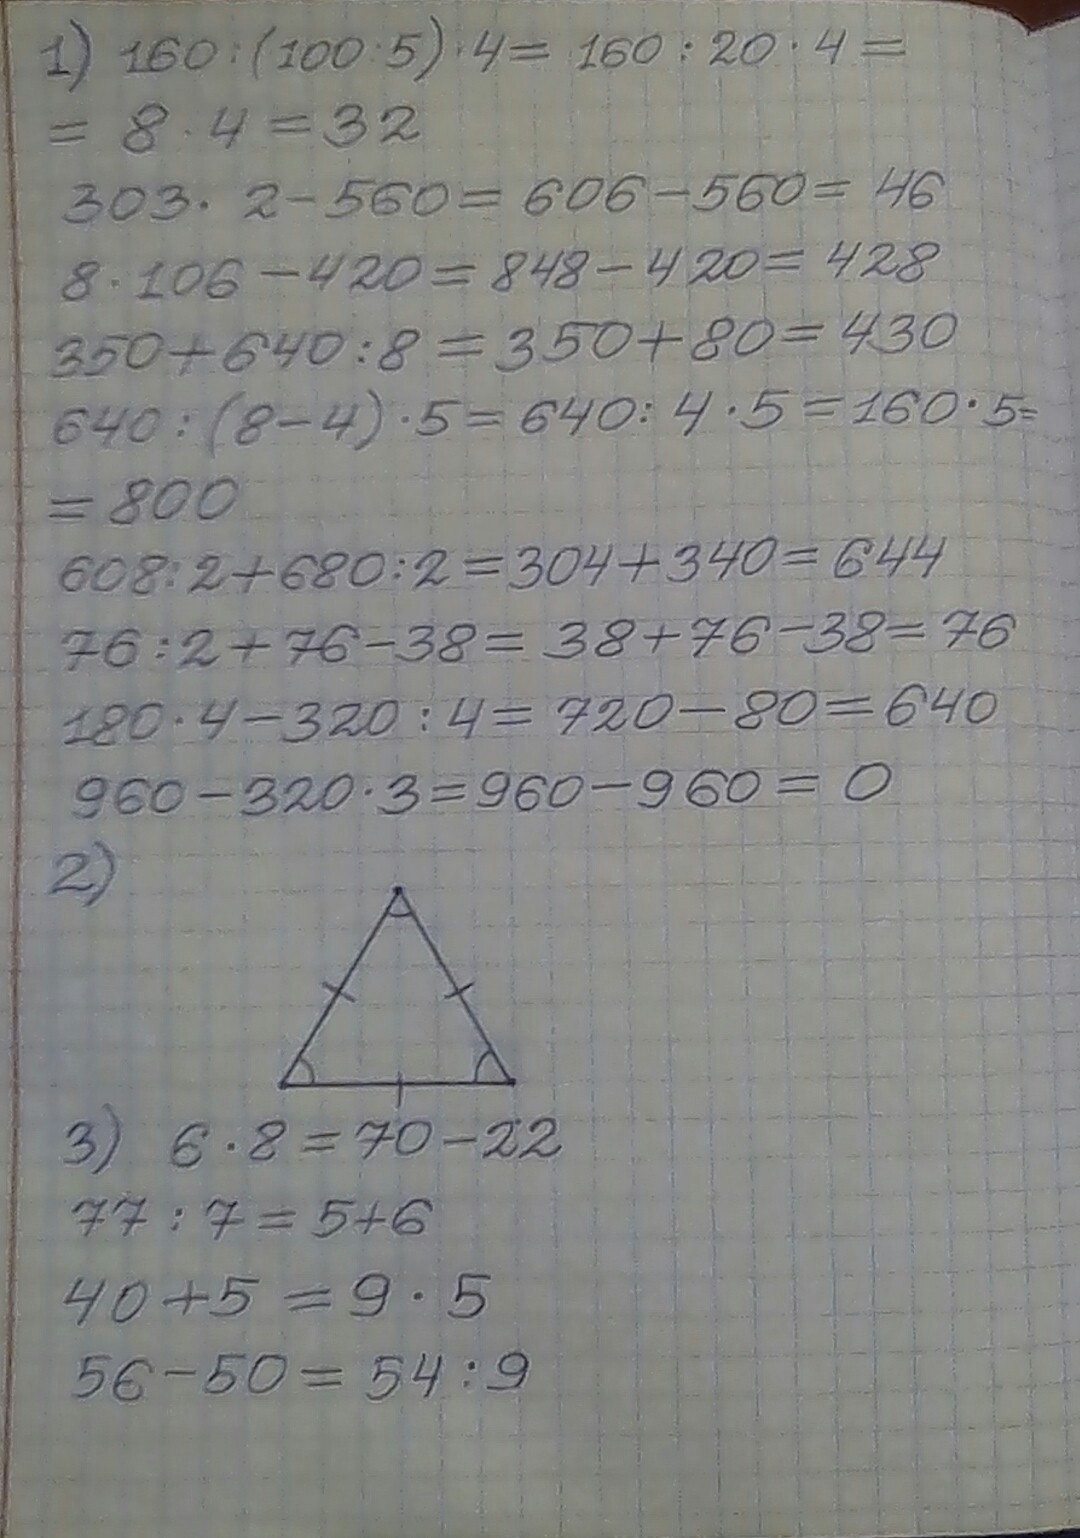 1) 160 : (100 : 5) · 4 = 160 : 20 · 4 =
= 8 · 4 = 32
303 · 2 - 560 = 606 - 560 = 46
8 · 106 - 420 = 848 - 420 = 428
350 + 640 : 8 = 350 + 80 = 430
640 : (8 - 4) · 5 = 640 : 4 · 5 = 160 · 5 =
= 800
608 : 2 + 680 : 2 = 304 + 340 = 644
76 : 2 + 76 - 38 = 38 + 76 - 38 = 76
180 · 4 - 320 : 4 = 720 - 80 = 640
960 - 320 · 3 = 960 - 960 = 0
2)
3) 6 · 8 = 70 - 22
77 : 7 = 5 + 6
40 + 5 = 9 · 5
56 - 50 = 54 : 9